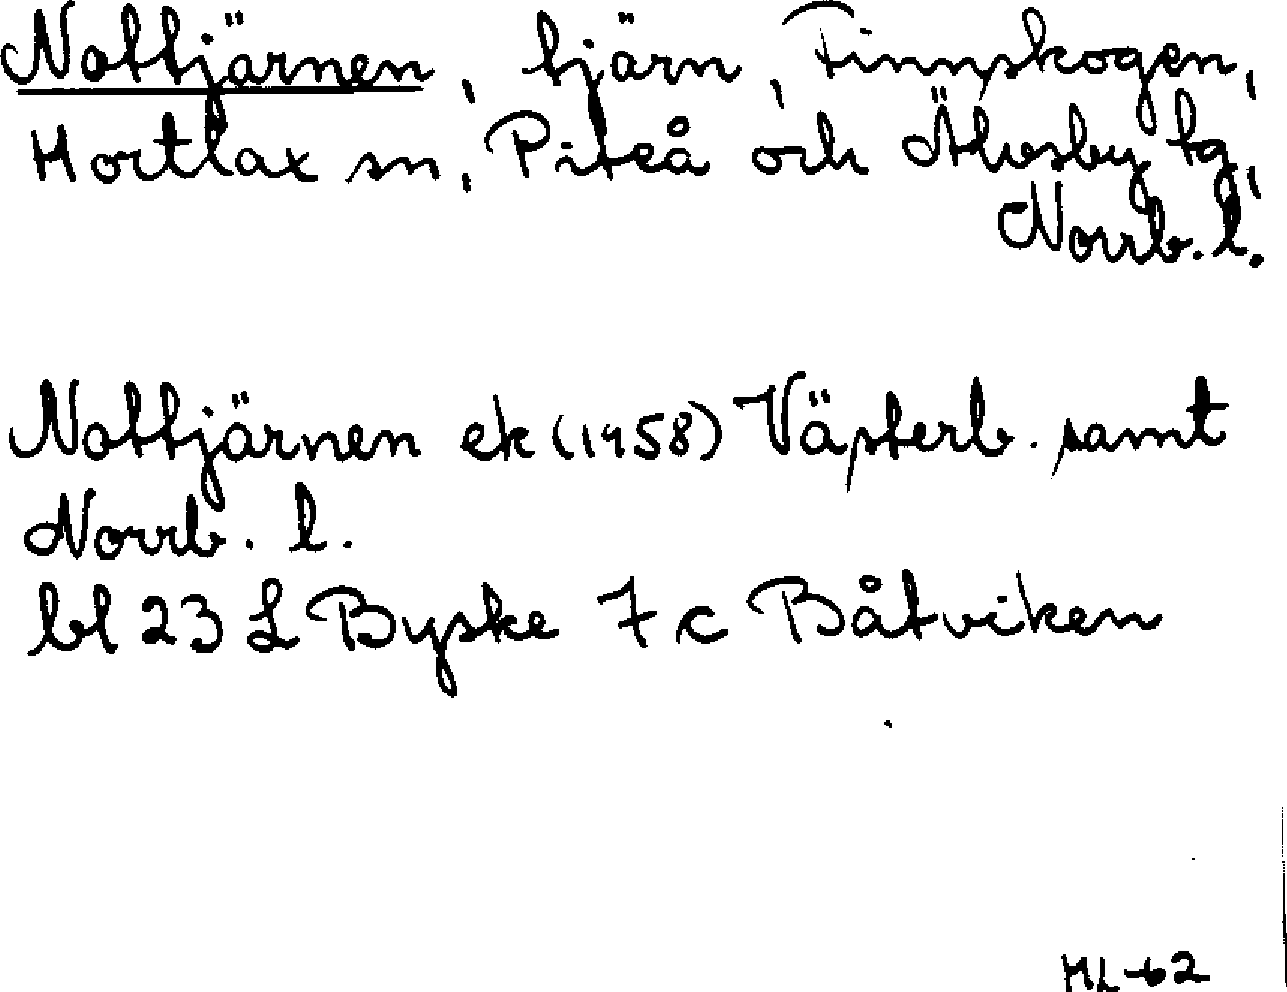 Nottjärnen, tjärn, Finnskogen,
Hortlax sn, Piteå och Älvsby tg,
Norrb. l.
Nottjärnen ek (1958) Västerb. samt
Norrb. l.
bl 23 L Byske 7 c Båtviken
ML-62